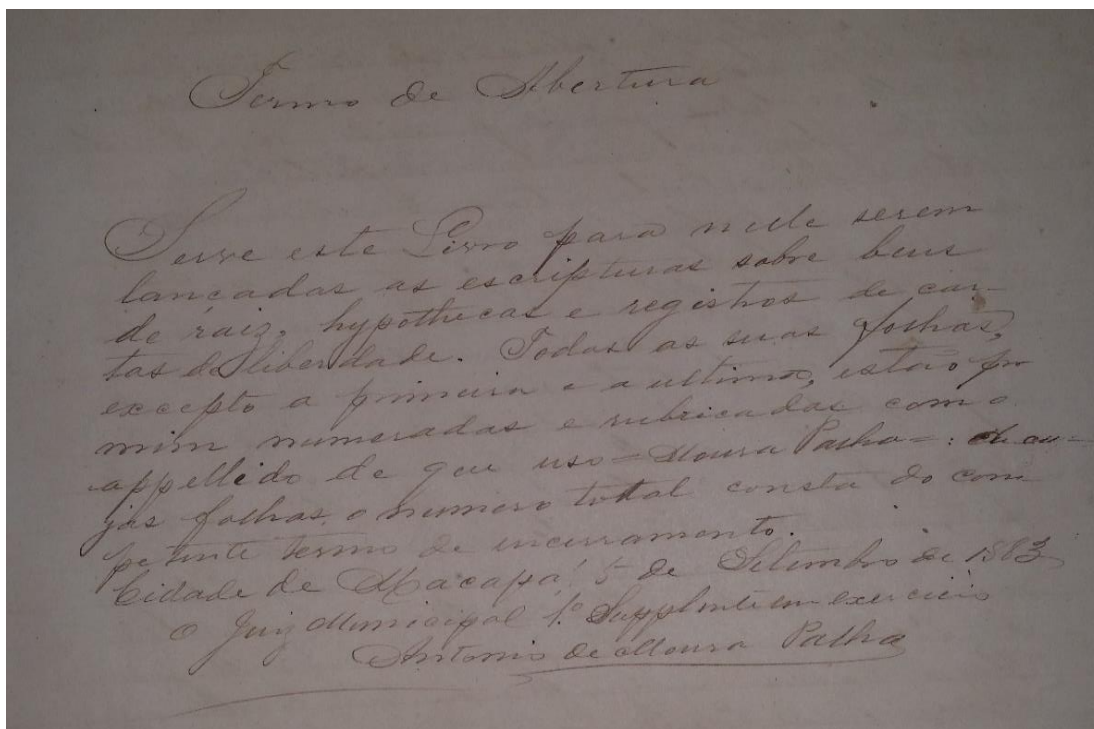 Termo de Abertura
Serve este Livro para nelle serem
lançadas as escripturas sobre bens
de raiz, hypothecas e registros de car-
tas de liberdade. Todas as suas folhas,
excepto a primeira e a ultima, estão por
mim numeradas e rubricadas com o
appellido de que uso = Moura Palha = : de cu-
jas folhas o numero total consta do com
petente termo de encerramento.
Cidade de Macapá, 5 de Setembro de 1883
O Juiz Municipal 1º Supplente em exercicio
Antonio de Moura Palha